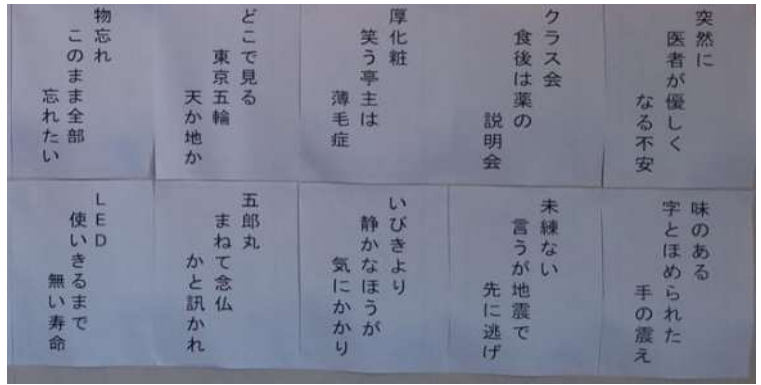 突然に
医者が優しく
なる不安
クラス会
食後は薬の
説明会
厚化粧
笑う亭主は
薄毛症
どこで見る
東京五輪
天か地か
物忘れ
このまま全部
忘れたい
味のある
字とほめられた
手の震え
未練ない
言うが地震で
先に逃げ
いびきより
静かなほうが
気にかかり
五郎丸
まねて念仏
かと訊かれ
LED
使いきるまで
無い寿命